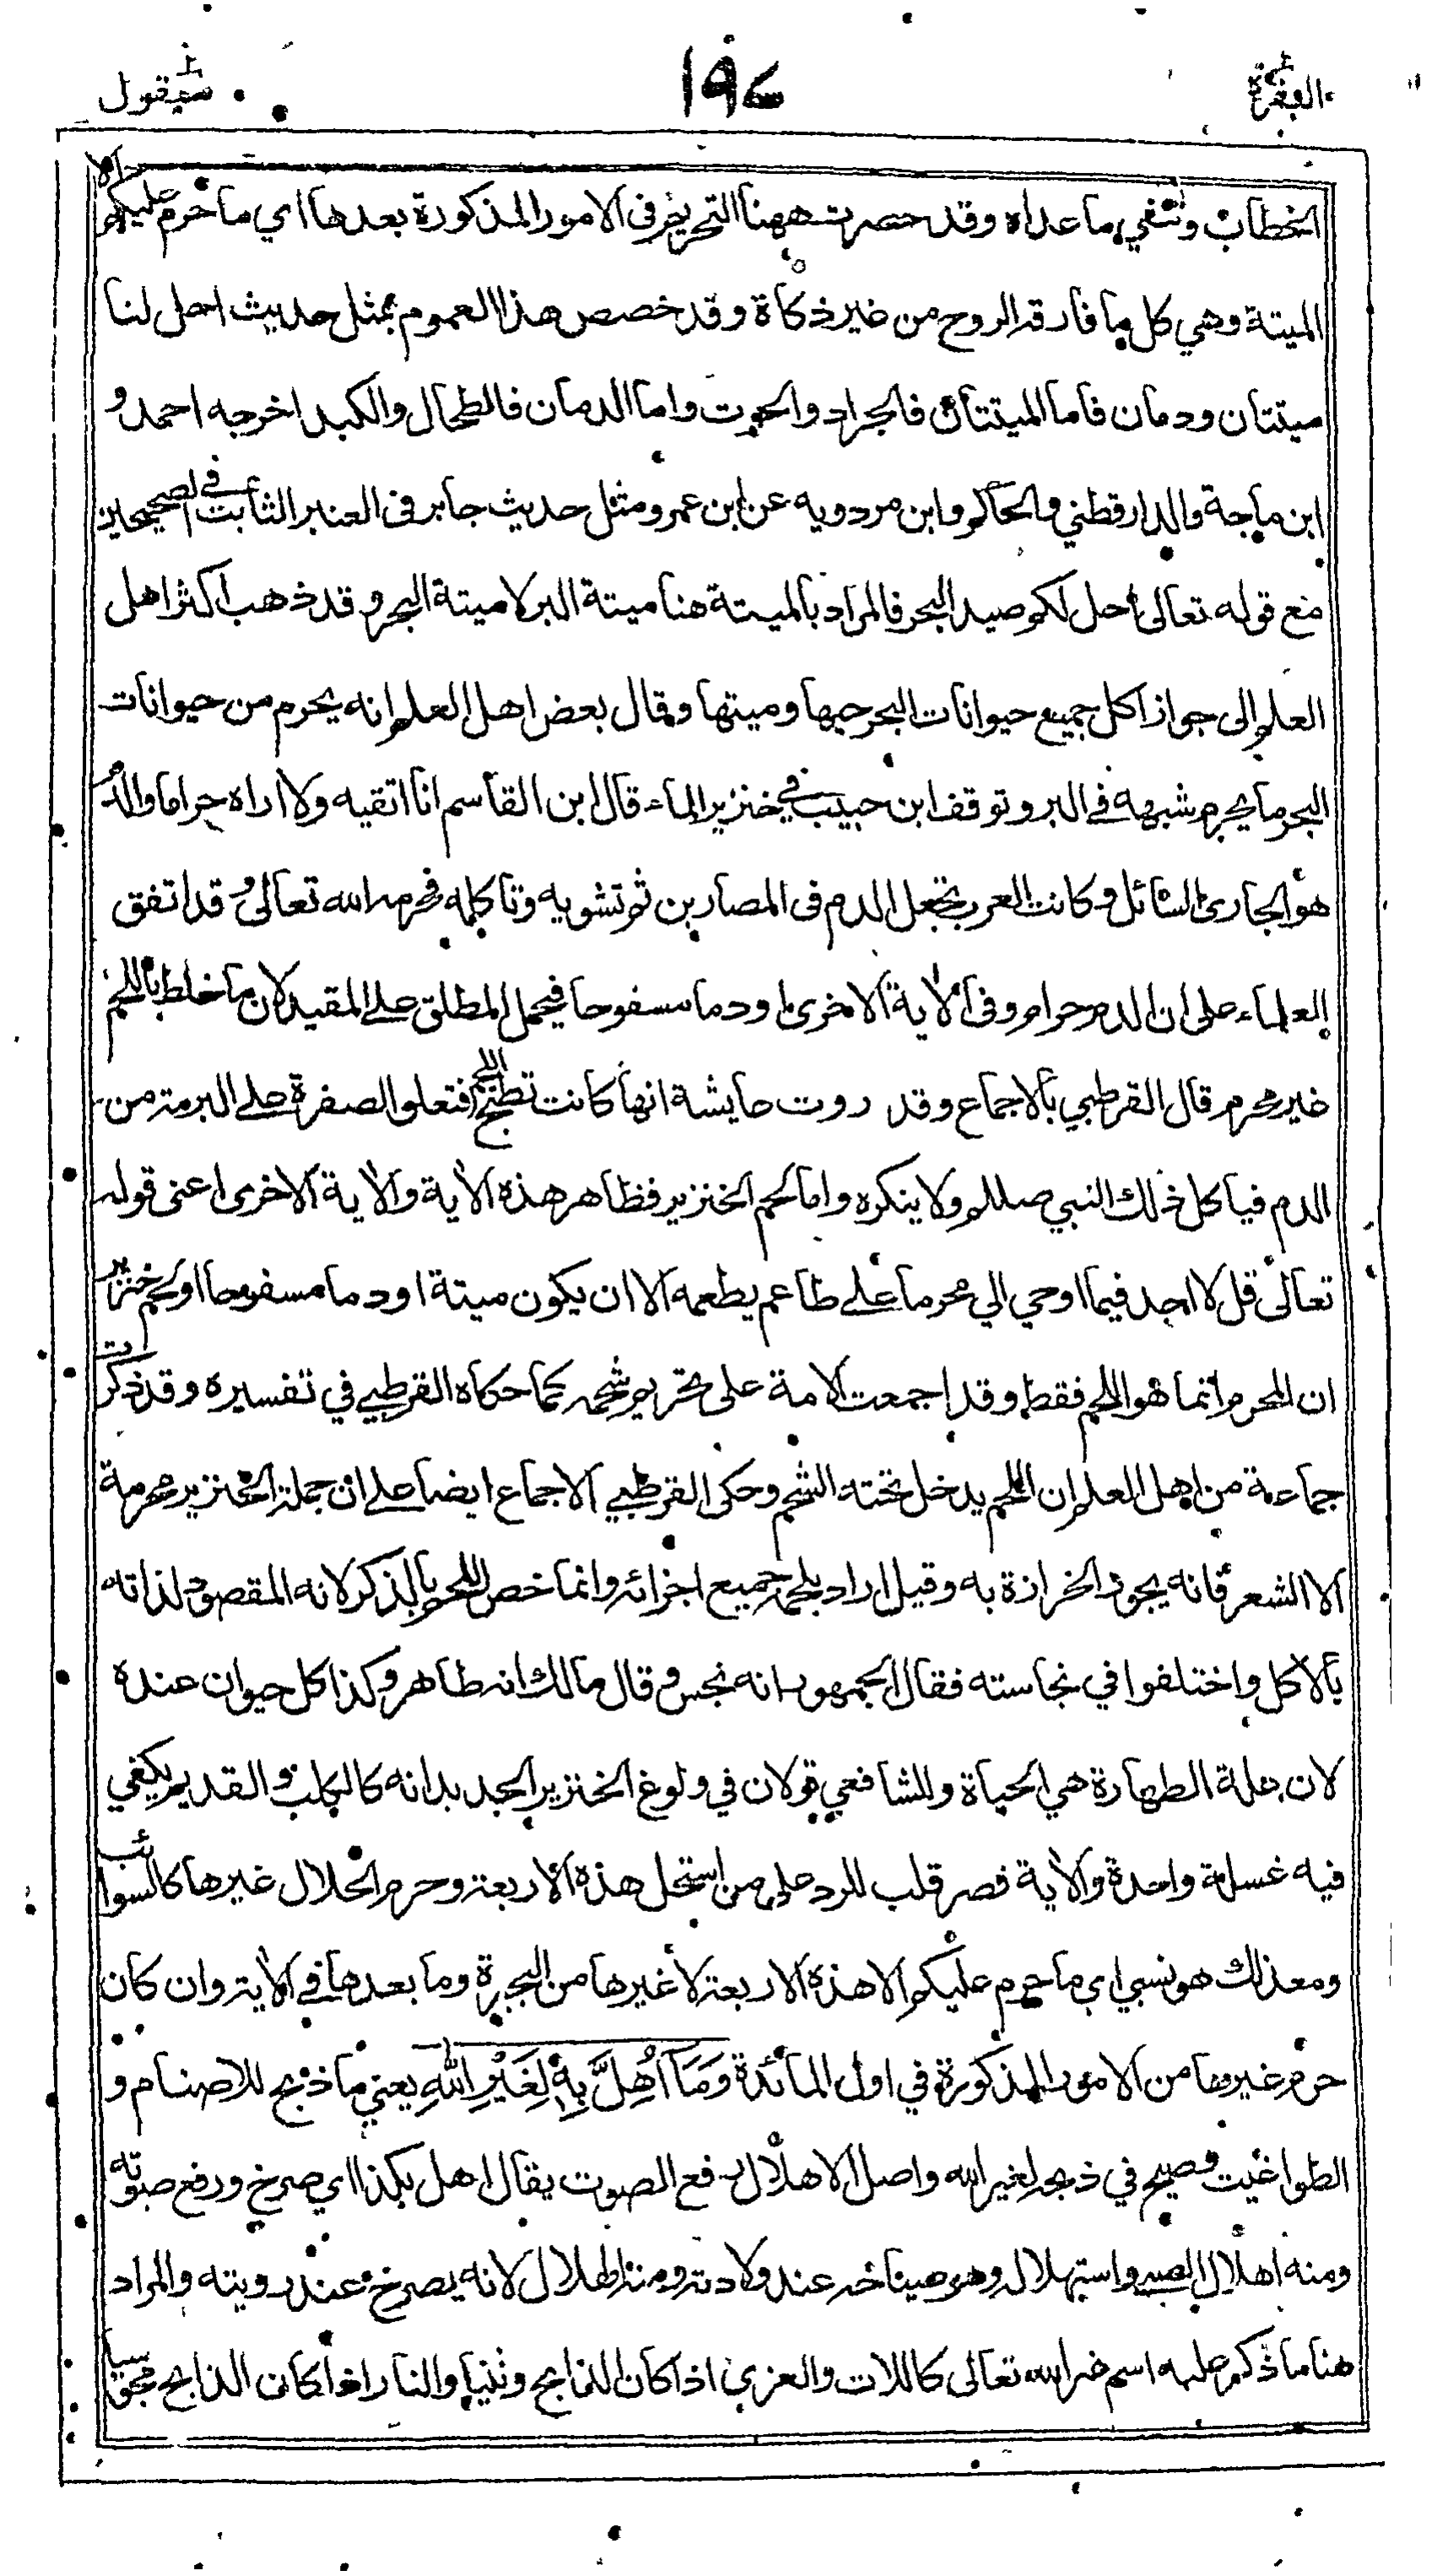 البقرة
١٩٤
سيقول
الخطاب وتنفي ما عداه وقد حصرت ههنا التحريم في الامور المذكورة بعدها اي ما حرم عليكم الا
الميتة وهي كل ما فارقه الروح من غير ذكاة وقد خصص هذا العموم بمثل حديث احل لنا
ميتتان ودمان فاما الميتتان فالجراد والحوت واما الدمان فالطحال والكبد اخرجه احمد و
ابن ماجة والدارقطني والحاكم وابن مردويه عن ابن عمر ومثل حديث جابر في العنبر الثابت في الصحيحين
مع قوله تعالى احل لكم صيد البحر فالمراد بالميتة هنا ميتة البر لا ميتة البحر وقد ذهب اكثر اهل
العلم الى جواز اكل جميع حيوانات البحر حيها وميتها وقال بعض اهل العلم انه يحرم من حيوانات
البحر ما يحرم شبهه في البر وتوقف ابن حبيب في خنزير الماء قال ابن القاسم انا اتقيه ولا اراه حراما والدم
هو الجاري السائل وكانت العرب تجعل الدم في المصارين ثم تشويه وتاكله فحرمه الله تعالى وقد اتفق
العلماء على ان الدم حرام وفي الاية الاخرى او دما مسفوحا فيحمل المطلق على المقيد لان ما خلط باللحم
غير محرم قال القرطبي بالاجماع وقد روت عايشة انها كانت تطبخ اللحم فتعلو الصفرة على البرمة من
الدم فياكل ذلك النبي صللم ولا ينكره واما لحم الخنزير فظاهر هذه الاية والاية الاخرى اعني قوله
تعالى قل لا اجد فيما اوحي الي محرما على طاعم يطعمه الا ان يكون ميتة او دما مسفوحا او لحم خنزير
ان المحرم انما هو اللحم فقط وقد اجمعت الامة على تحريم شحمه كما حكاه القرطبي في تفسيره وقد ذكرت
جماعة من اهل العلم ان اللحم يدخل تحته الشحم وحكى القرطبي الاجماع ايضا على ان جملة الخنزير محرمة
الا الشعر فانه يجوز الخرازة به وقيل اراد بلحمه جميع اجزائه وانما خص اللحم بالذكر لانه المقصود لذاته
بالاكل واختلفوا في نجاسته فقال الجمهور انه نجس وقال مالك انه طاهر وكذا كل حيوان عنده
لان علة الطهارة هي الحياة وللشافعي قولان في ولوغ الخنزير الجديد انه كالكلب والقديم يكفي
فيه غسلة واحدة والاية قصر قلب للرد على من استحل هذه الاربعة وحرم الحلال غيرها كالسوائب
ومع ذلك هو نسبي اي ما حرم عليكم الا هذه الاربعة لا غيرها من البحيرة وما بعدها في الاية وان كان
حرم غيرها من الامور المذكورة في اول المائدة وَمَآ اُهِلَّ بِهٖ لِغَيْرِ اللهِ يعني ما ذبح للاصنام و
الطواغيت وصيح في ذبحه لغير الله واصل الاهلال رفع الصوت يقال اهل بكذا اي صرخ ورفع صوته
ومنه اهلال الصبي واستهلاله وهو صياحه عند ولادته ومنه الهلال لانه يصرخ عند رويته والمراد
هنا ما ذكر عليه اسم غير الله تعالى كاللات والعزى اذا كان الذابح وثنيا والنار اذا كان الذابح مجوسيا